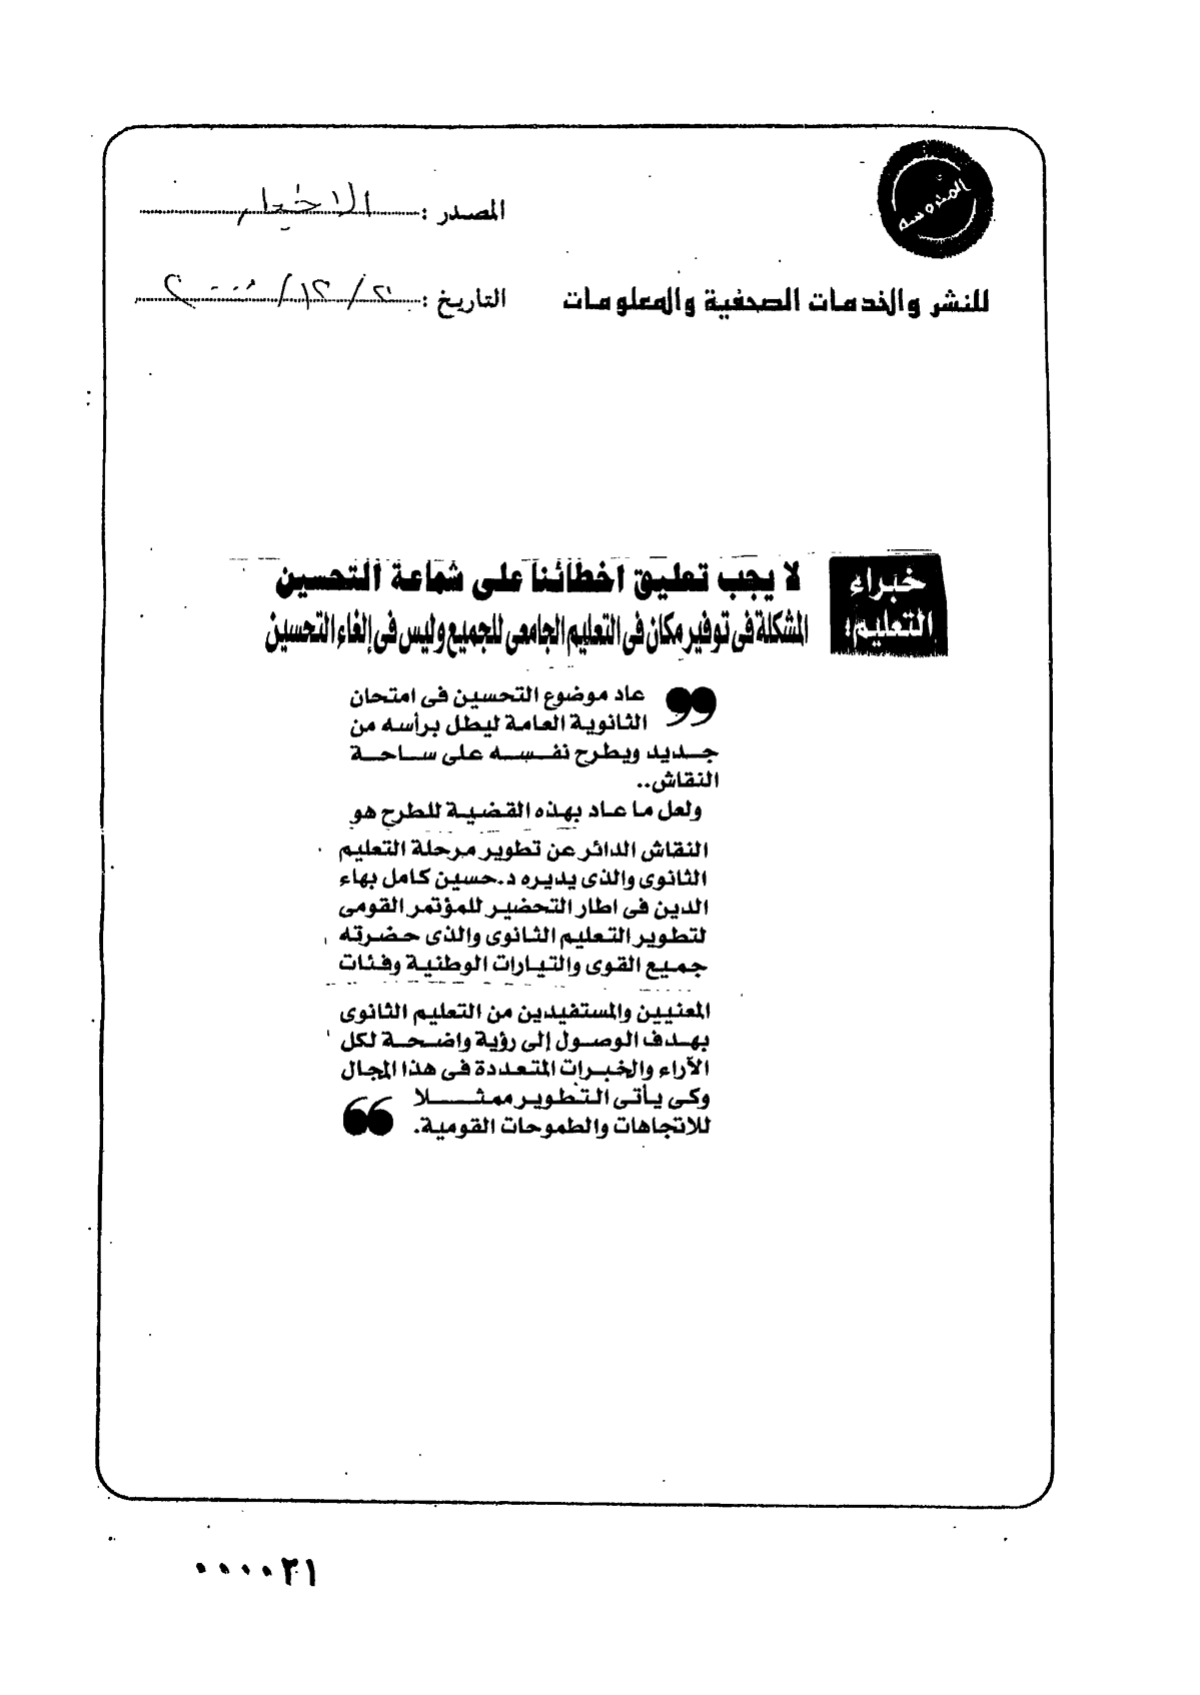 المحروسة
المصدر : الأخبار
للنشر والخدمات الصحفية والمعلومات
التاريخ : ٢٠٠٠/١٢/٢١
خبراء التعليم:
لا يجب تعليق اخطائنا على شماعة التحسين
المشكلة فى توفير مكان فى التعليم الجامعى للجميع وليس فى إلغاء التحسين
عاد موضوع التحسين فى امتحان
الثانوية العامة ليطل برأسه من
جديد ويطرح نفسه على ساحة
النقاش..
ولعل ما عاد بهذه القضية للطرح هو
النقاش الدائر عن تطوير مرحلة التعليم
الثانوى والذى يديره د.حسين كامل بهاء
الدين فى اطار التحضير للمؤتمر القومى
لتطوير التعليم الثانوى والذى حضرته
جميع القوى والتيارات الوطنية وفئات
المعنيين والمستفيدين من التعليم الثانوى
بهدف الوصول إلى رؤية واضحة لكل
الآراء والخبرات المتعددة فى هذا المجال
وكى يأتى التطوير ممثلا
للاتجاهات والطموحات القومية.
٠٠٠٠٢١